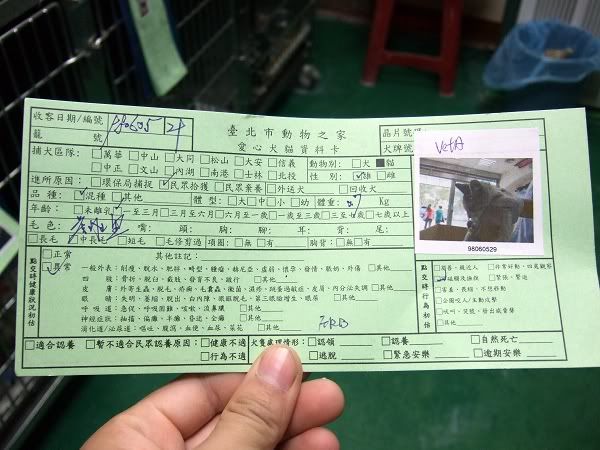 收容日期/編號 980605 24
籠 號
臺北市動物之家
愛心犬貓資料卡
晶片號
犬牌號
捕犬區隊: □萬華 □中山 □大同 □松山 □大安 □信義 動物別: □犬 ■貓
□中正 □文山 □內湖 □南港 □士林 □北投 性 別: □雄 □雌
進所原因: □環保局捕捉 □民眾拾獲 □民眾棄養 □外送犬 □回收犬
品 種: □混種 □其他 體型: □大 □中 □小 □幼 體重: Kg
年齡: □未離乳 □一至三月 □三月至六月 □六月至一歲 □一至三歲 □三至七歲 □七歲以上
毛 色: 嘴: 頭: 腳: 耳: 背: 尾:
□長毛 □中長毛 □短毛 □毛修剪過 項圈: □無 □有 胸背: □無 □有
98060529
點交時健康狀況初估
□正常 其他註記:
□異常
一般外表: 削瘦、脫水、肥胖、畸型、腫瘤、精尪亞、虛弱、懷孕、發情、脹奶、外傷 □其他
四 肢: 骨折、脫臼、截肢、發育不良、跛行 □其他
眼 睛: 失明、萎縮、脫出、白內障、眼瞼脫毛、第三眼瞼增生、眼屎 □其他
呼 吸 道: 急促、呼吸困難、咳嗽、流鼻膿 □其他
神經症狀: 抽搐、偏癱、半癱、昏迷、全癱 □其他
消化道/泌尿道: 嘔吐、腹瀉、血便、血尿、菜花 □其他
點交時行為初估
□溫善、親近人 □非常好動、四處觀察
□緊張、緊迫
□害羞、畏縮、不想移動
□公開咬人/主動攻擊
□吠叫、哭號、發出威脅聲
□其他
□適合認養 □暫不適合民眾認養原因: □健康不適 犬隻處理情形: □認領 □認養 □自然死亡
□行為不適 □逃脫 □緊急安樂 □逾期安樂